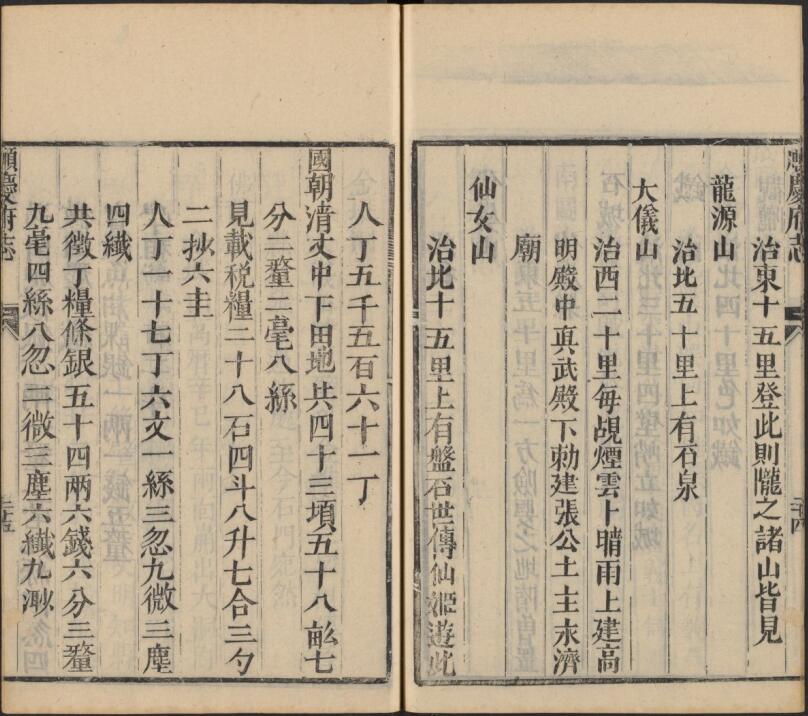 順慶府志
治東十五里登此則隴之諸山皆見
龍源山
治北五十里上有石泉
大儀山
治西二十里每覘煙雲卜晴雨上建高
明殿中真武殿下勅建張公土主永濟
廟
仙女山
治北十五里上有盤石世傳仙姬遊此
人丁五千五百六十一丁
國朝清丈中下田地共四十三塤五十八畝七
分二釐二毫八絲
見載稅糧二十八石四斗八升七合三勺
二抄六圭
人丁一十七丁六文一絲三忽九微三塵
四纖
共徵丁糧條銀五十四兩六錢六分三釐
九毫四絲八忽二微三塵六纖九渺
順慶府志